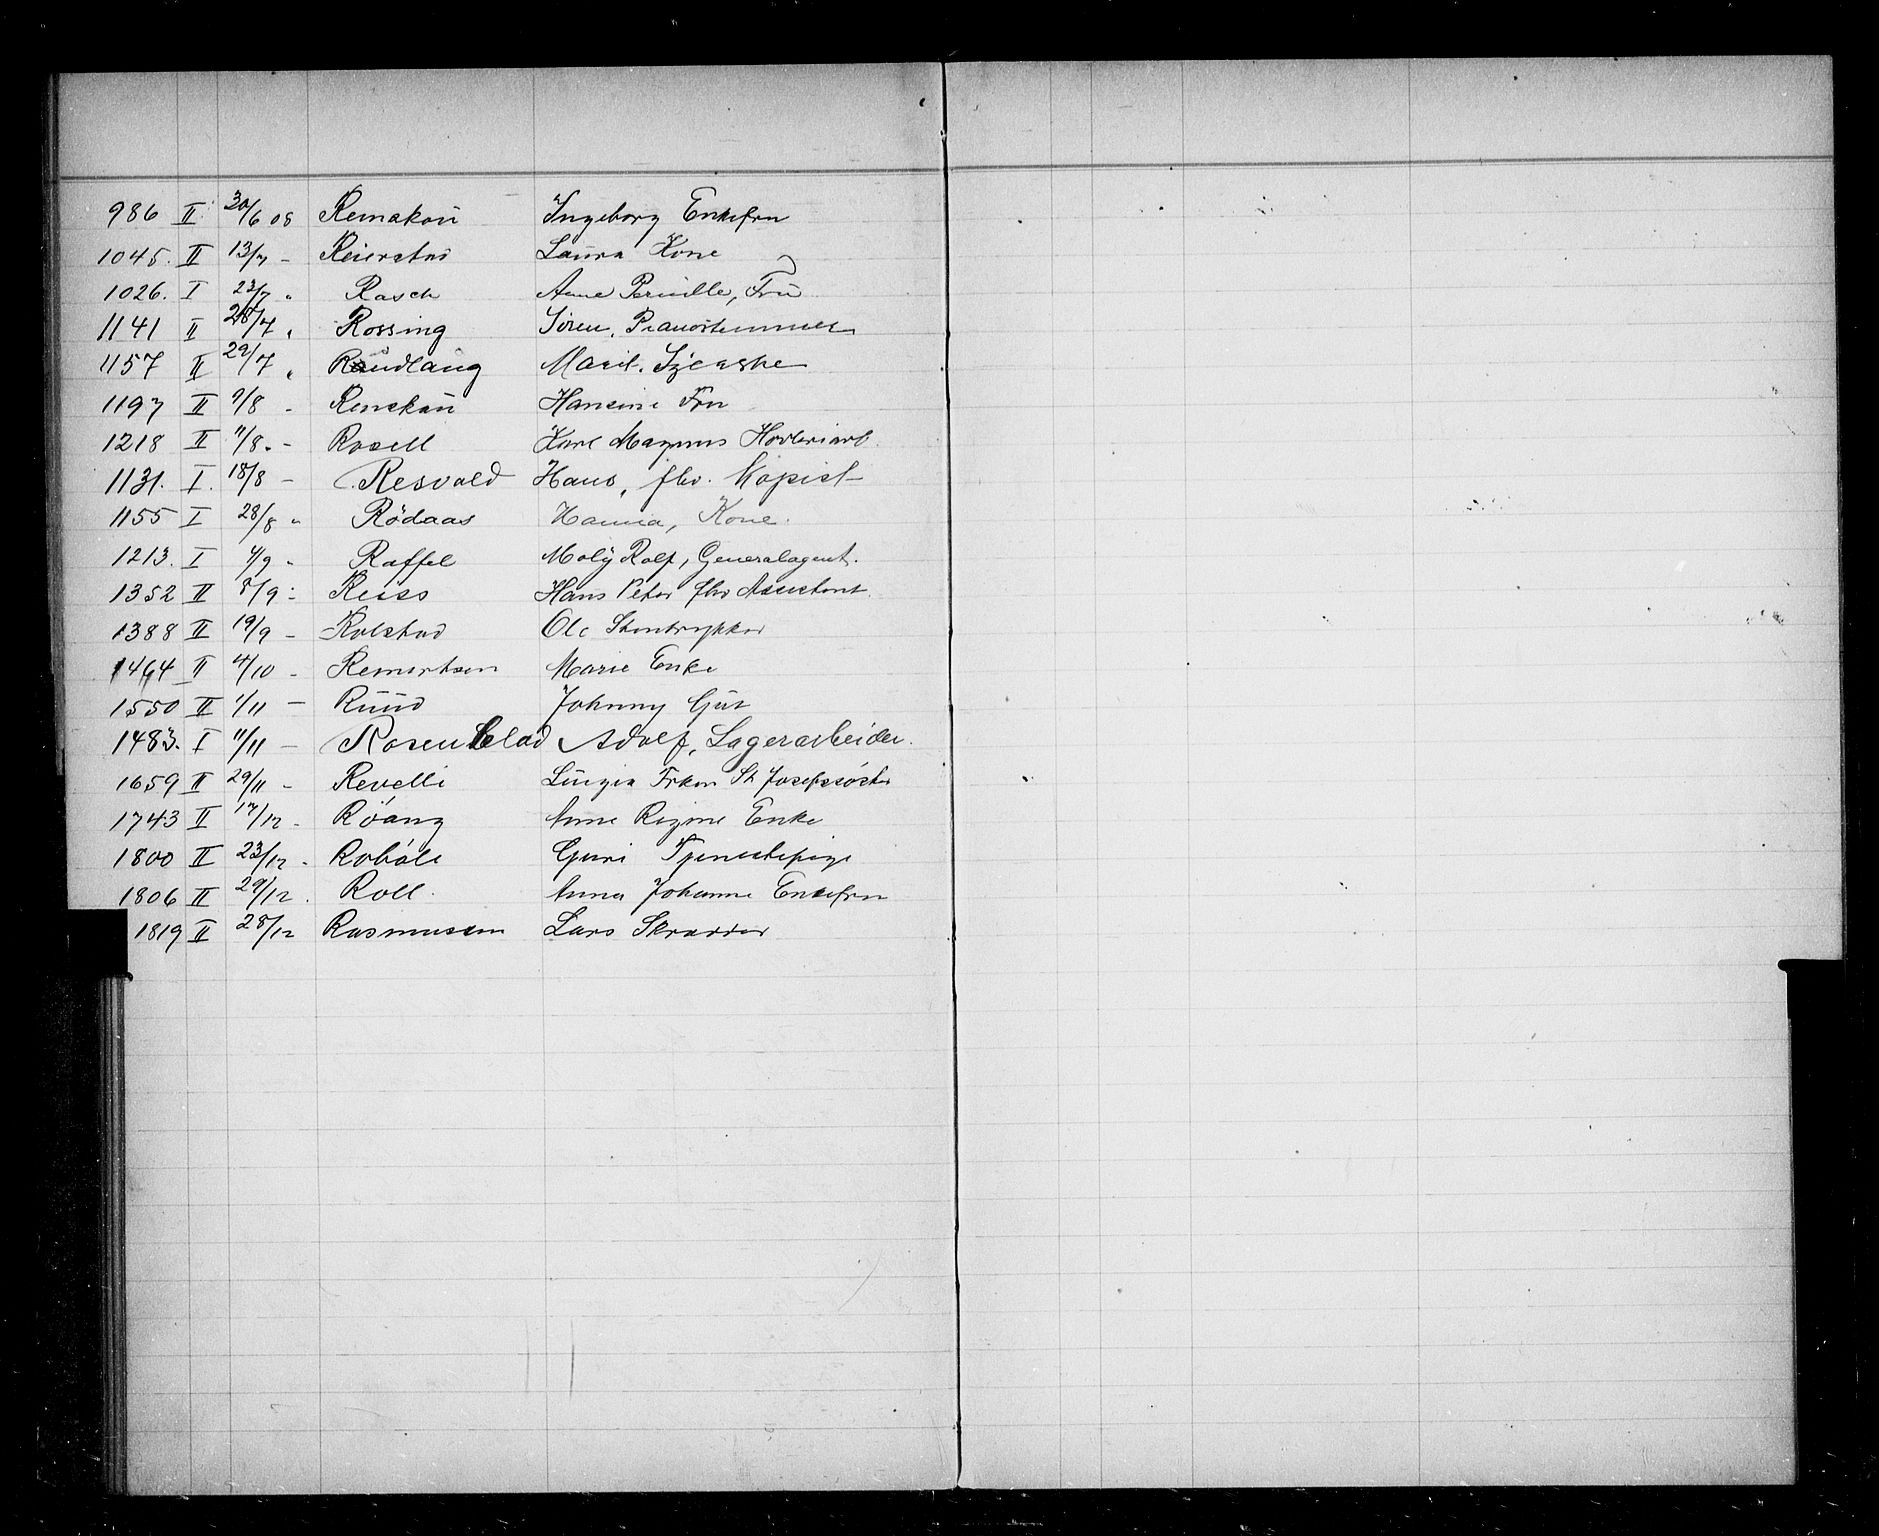 986 II 30/6 08 Remakou Ingeborg Enkefru
1045. II 13/7 - Reierstad Laura Kone
1026. I 23/7 " Rasch Anne Pernille, Fru
1141 II 28/7 " Rossing Sören, Pianostemmer
1157 II 29/7 " Raudlaug Marit.
1197 II 9/8 - Fru
1218 II 11/8. - Rosell Karl Magnus
1131. I. 18/8 - Resvold Hans, fhv. Kopist
1155 I 28/8 " Rödaas Hanna, Kone.
1213. I 4/9 " Raffel Moly Rolf, Generalagent.
1352 II 8/9 - Reiss Hans Peter fhv Assistent
1388 II 19/9 - Rolstad Ole Stentrykker
1464 II 4/10 - Remertsen Marie Enke
1550 II 1/11 - Ruud Johnny Gut
1483. I 11/11 - Rosenblad Adolf, Lagerarbeider.
1659 II 29/11 - Revelli Luigia Frken St Josefssöster
1743 II 17/12 - Röang Anne Regine Enke
1800 II 23/12 - Roböle Guri Tjenestepige
1806 II 29/12. Roll. Anna Johanne Enkefru
1819 II 28/12 Rasmussen Lars Skrædder